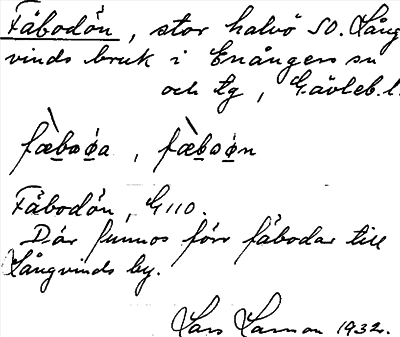 Fäbodön, stor halvö SO. Lång
vinds bruk i Enångers sn
och tg, Gävleb. l.
fæ̀bo̲ǿ̲a, fæ̀b̲o̲ǿ̲n
Fäbodön, G110.
Där funnos förr fäbodar till
Långvinds by.
Lars Larson 1932.